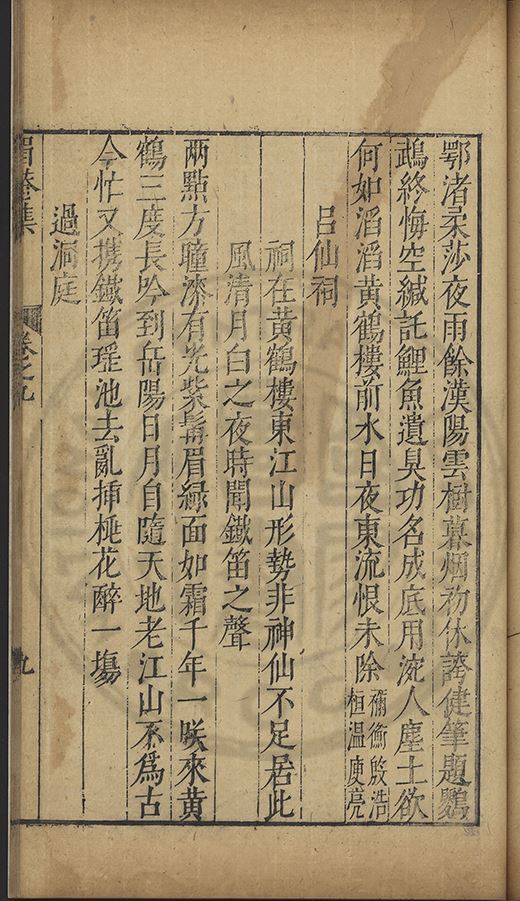 鄂渚柔莎夜雨餘漢陽雲樹暮烟初休誇健筆題鸚
鵡終悔空緘託鯉魚遺臭功名成底用涴人塵土欲
何如滔滔黃鶴樓前水日夜東流恨未除禰衡殷浩
桓温庾亮
呂仙祠
祠在黃鶴樓東江山形勢非神仙不足居此
風清月白之夜時聞鐵笛之聲
兩點方瞳漆有光紫髯眉綠面如霜千年一咲來黃
鶴三度長吟到岳陽日月自隨天地老江山不爲古
今忙又携鐵笛瑶池去亂挿桃花醉一塲
過洞庭
卷之九
九